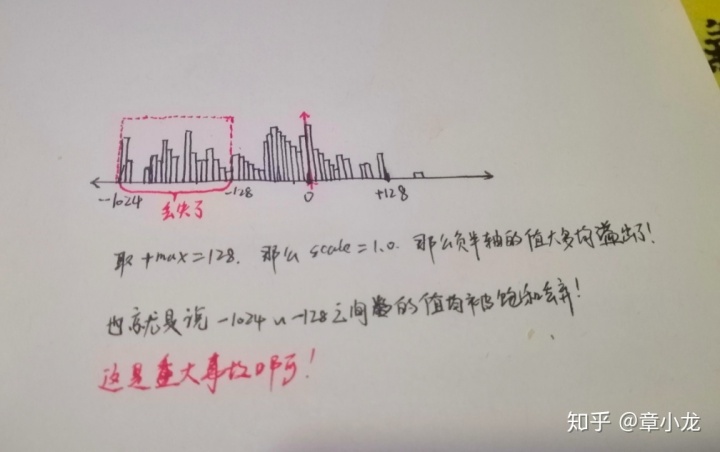 -1024 -128 0 +128
丢失了
取 +max=128. 那么 scale=1.0. 那么负半轴的值大多均溢出了!
也就是说 -1024 ~ -128之间的值均被饱和弃!
这是重大事故啊!
知乎 @章小龙